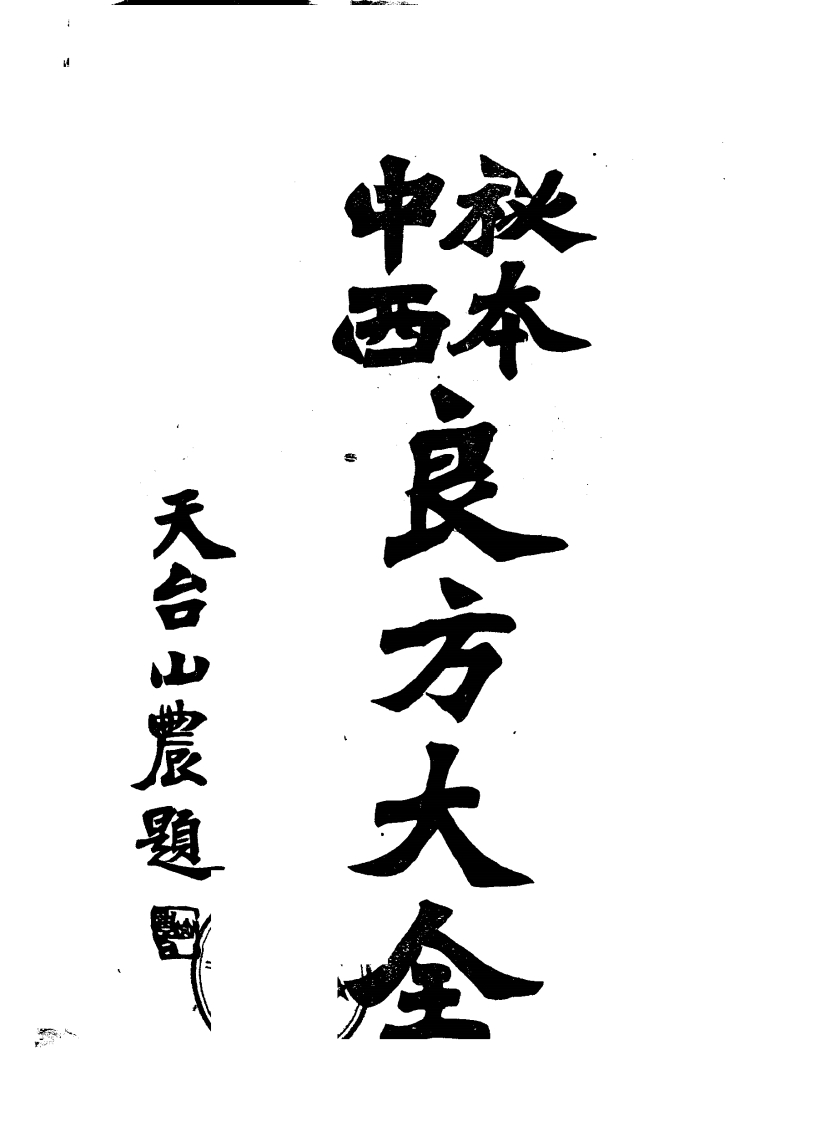 祕本
中西
良方大全
天台山農題